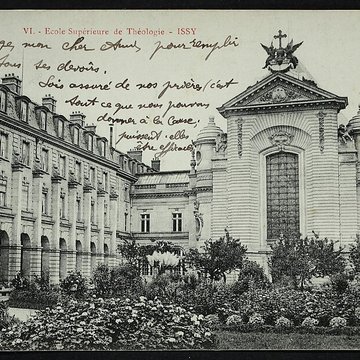 VI. - Ecole Supérieure de Théologie - ISSY
mon cher ami, pour remplir
tous ses devoirs.
Sois assuré de nos prières, c'est
tout ce que nous pouvons
donner à la Cause.
puissent-elles
être efficaces